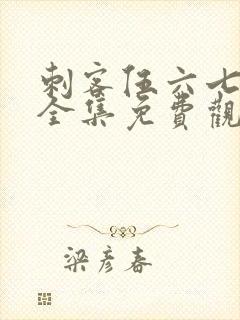 刺客伍六七
全集免費觀
梁彥春